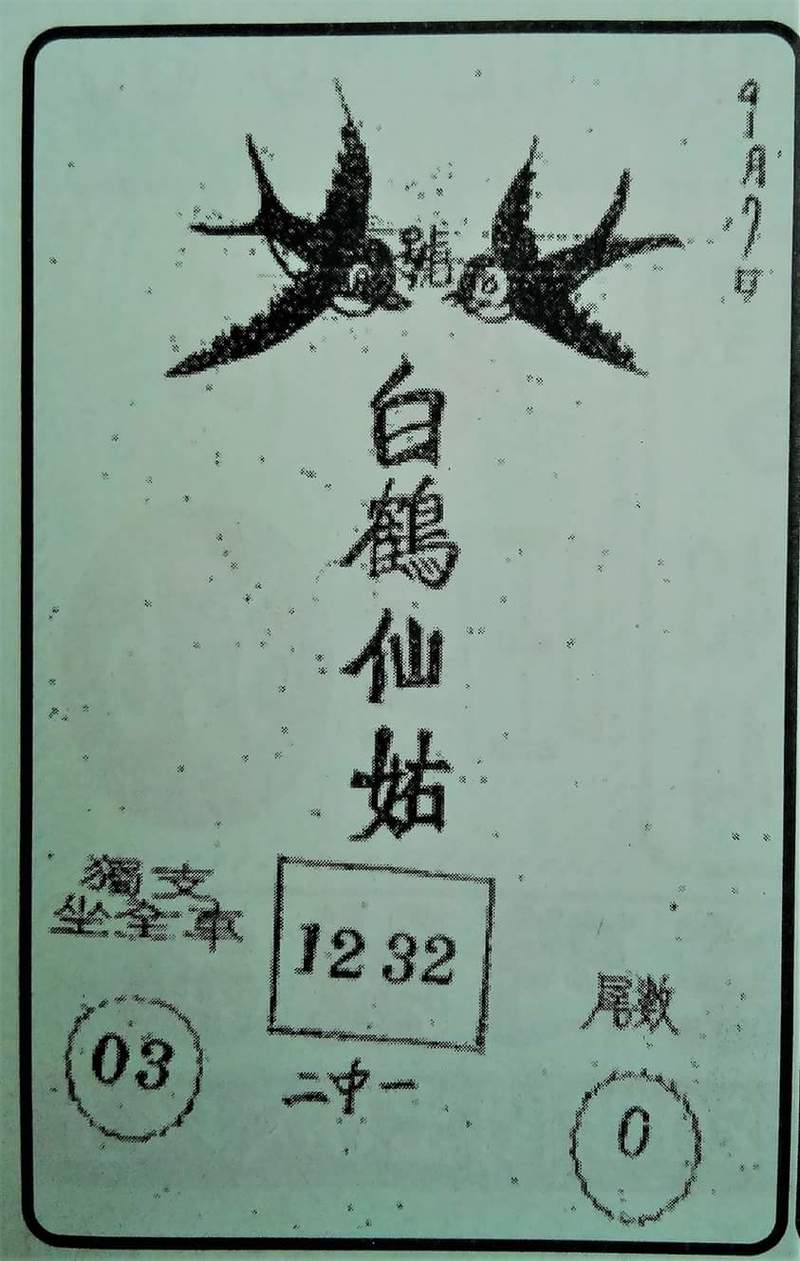 9月7日
號
白鶴仙姑
獨支
坐全車
03
12 32
二中一
尾數
0